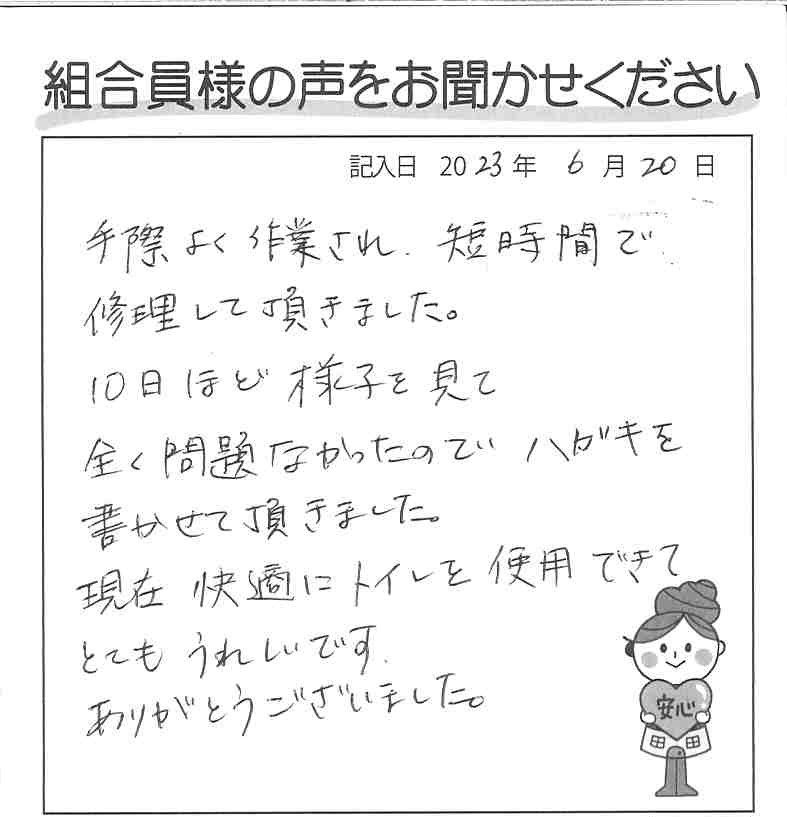 組合員様の声をお聞かせください
記入日 2023年 6月20日
手際よく作業され、短時間で
修理して頂きました。
10日ほど様子を見て
全く問題なかったのでハガキを
書かせて頂きました。
現在 快適にトイレを使用できて
とてもうれしいです。
ありがとうございました。
安心